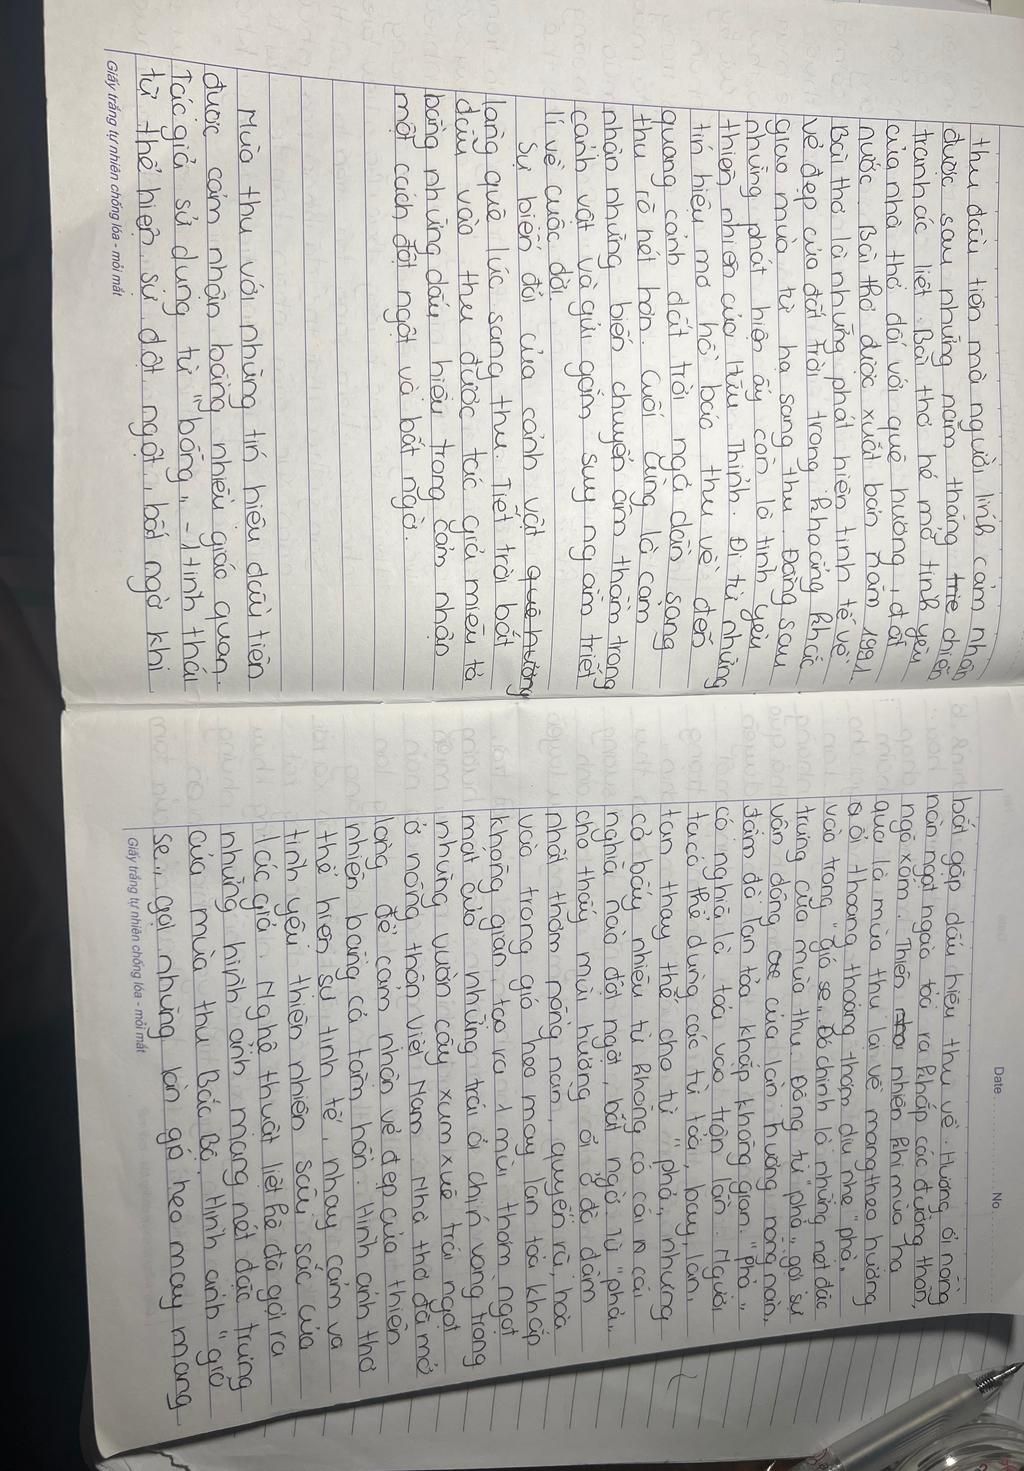 thu đầu tiên mà người lính cảm nhận
được sau những năm tháng chiến
tranh ác liệt. Bài thơ hé mở tình yêu
của nhà thơ đối với quê hương, đất
nước. Bài thơ được xuất bản năm 1991.
Bài thơ là những phát hiện tinh tế về
vẻ đẹp của đất trời trong khoảng khắc
giao mùa từ hạ sang thu. Đằng sau
những phát hiện ấy còn là tình yêu
thiên nhiên của Hữu Thỉnh. Đi từ những
tín hiệu mơ hồ báo thu về đến
quang cảnh đất trời ngả dần sang
thu rõ nét hơn. Cuối cùng là cảm
nhận những biến chuyển âm thầm trong
cảnh vật và gửi gắm suy ngẫm triết
lí về cuộc đời.
Sự biến đổi của cảnh vật quê hương
làng quê lúc sang thu. Tiết trời bắt
đầu vào thu được tác giả miêu tả
bằng những dấu hiệu trong cảm nhận
một cách đột ngột và bất ngờ.
Mùa thu với những tín hiệu đầu tiên
được cảm nhận bằng nhiều giác quan.
Tác giả sử dụng từ "bỗng" - 1 tình thái
từ thể hiện sự đột ngột, bất ngờ khi
Giấy trắng tự nhiên chống lóa - mỏi mắt
Date No
bắt gặp dấu hiệu thu về. Hương ổi nồng
nàn ngọt ngào tỏi ra khắp các đường thôn,
ngõ xóm. Thiên nhiên khi mùa hạ
qua là mùa thu lại về mang theo hương
ổi thoang thoảng thơm dịu nhẹ "phả"
vào trong "gió se". Đó chính là những nét đặc
trưng của mùa thu. Động từ "phả" gợi sự
vận động của làn hương nồng nàn,
đậm đà lan tỏa khắp không gian. "Phả"
có nghĩa là toả vào, trộn lẫn. Người
ta có thể dùng các từ toả, bay, lan,
tan thay thế cho từ "phả" nhưng
cả bấy nhiêu từ không có cái cái
nghĩa nào đột ngột, bất ngờ. Từ "phả"
cho thấy mùi hương ổi ở độ đậm
nhất thơm nồng nàn, quyến rũ, hoà
vào trong gió heo may lan toả khắp
không gian, tạo ra 1 mùi thơm ngọt
mát của những trái ổi chín vàng trong
những vườn cây xum xuê trái ngọt
ở nông thôn Việt Nam. Nhà thơ đã mở
lòng để cảm nhận vẻ đẹp của thiên
nhiên bằng cả tâm hồn. Hình ảnh thơ
thể hiện sự tinh tế, nhạy cảm và
tình yêu thiên nhiên sâu sắc của
tác giả. Nghệ thuật liệt kê đã gợi ra
những hình ảnh mang nét đặc trưng
của mùa thu Bắc Bộ. Hình ảnh "gió
se" gợi những làn gió heo may mang
Giấy trắng tự nhiên chống lóa - mỏi mắt